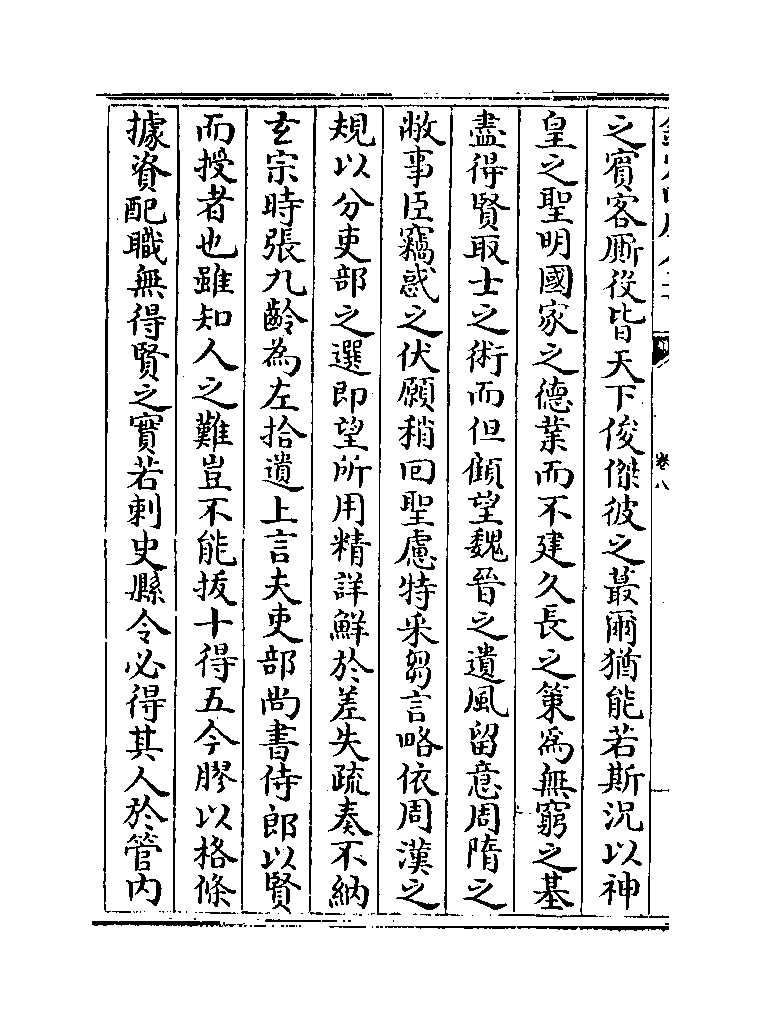 之賓客厮役皆天下俊傑彼之蕞爾猶能若斯況以神
皇之聖明國家之德業而不建久長之策爲無窮之基
盡得賢取士之術而但傾望魏晉之遺風留意周隋之
敝事臣竊惑之伏願稍回聖慮特采芻言略依周漢之
規以分吏部之選即望所用精詳鮮於差失疏奏不納
玄宗時張九齡為左拾遺上言夫吏部尚書侍郎以賢
而授者也雖知人之難豈不能拔十得五今膠以格條
據資配職無得賢之實若刺史縣令必得其人於管内
卷八